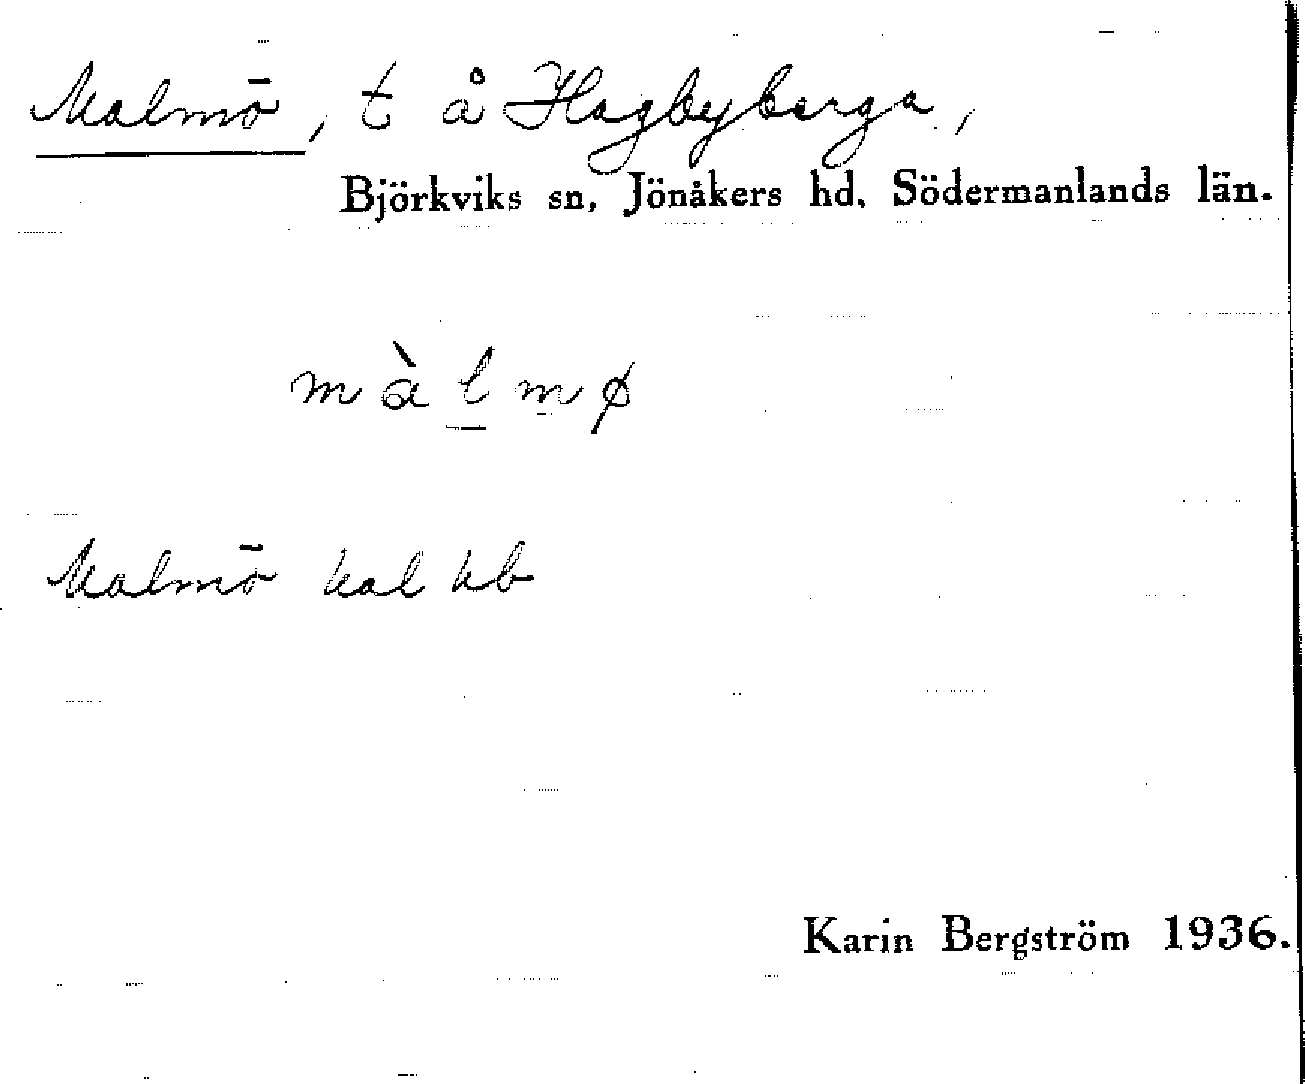 Malmö, t å Hagbyberga,
Björkviks sn, Jönåkers hd, Södermanlands län.
màlmø
Malmö hal hb
Karin Bergström 1936.